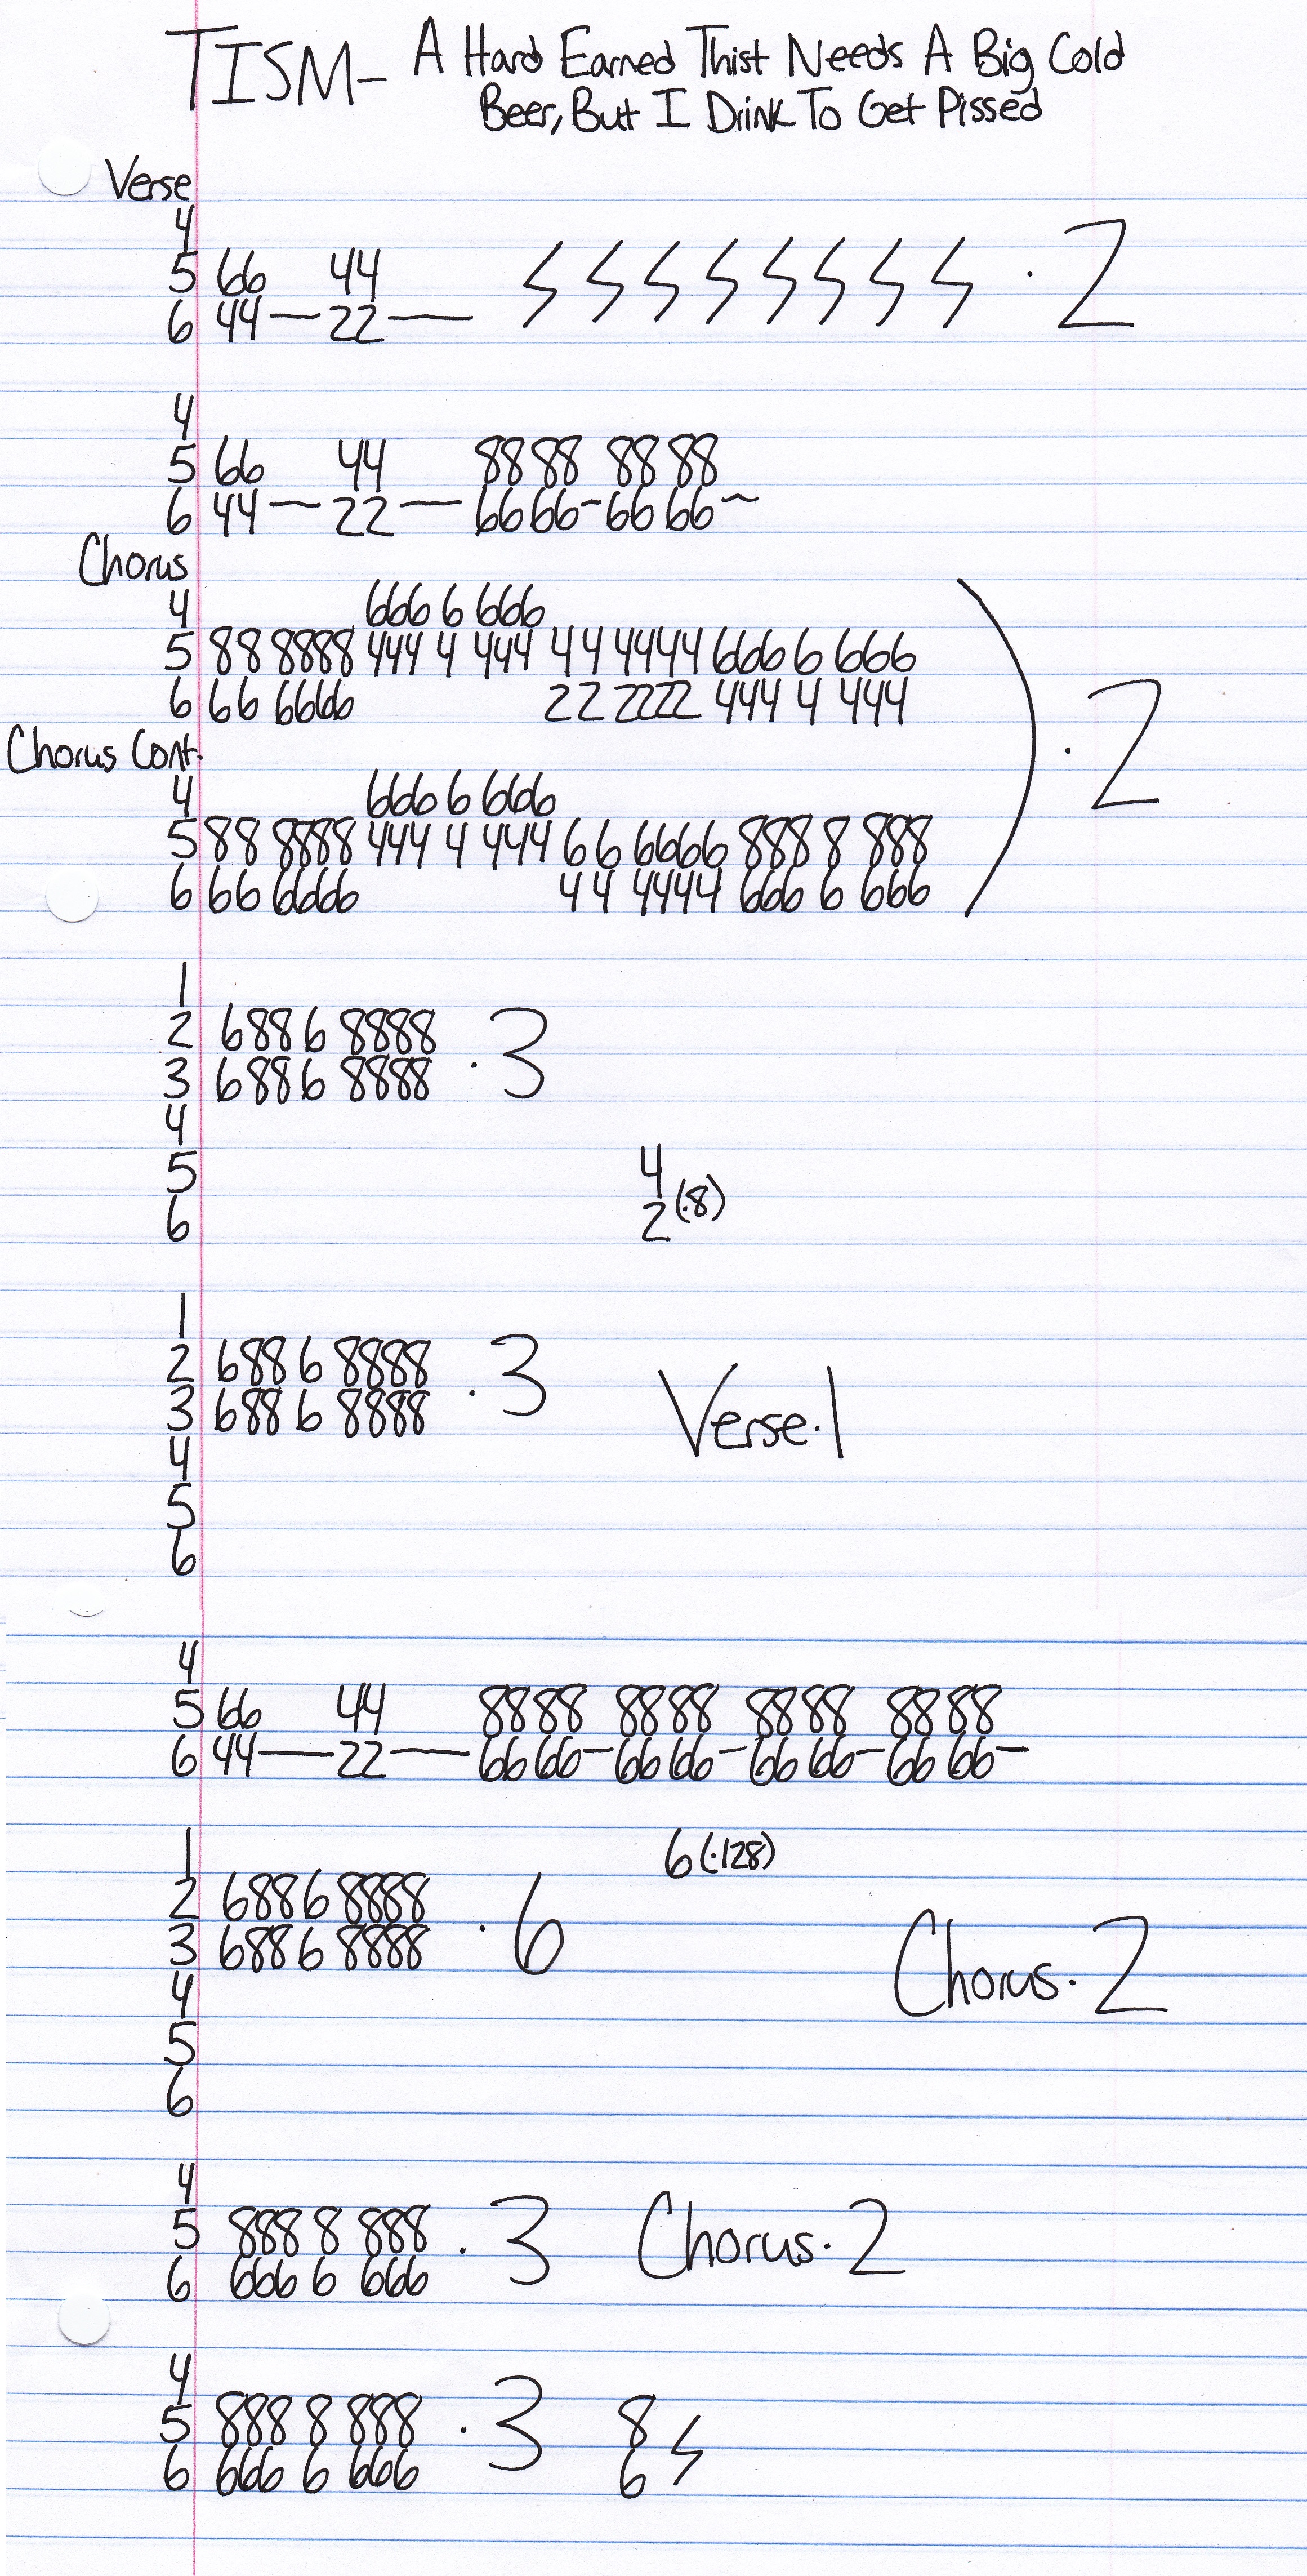 TISM- A Hard Earned Thist Needs A Big Cold
Beer, But I Drink To Get Pissed
Verse
4
5 66 44
6 44—22— ϟ ϟ ϟ ϟ ϟ ϟ ϟ ϟ · 2
4
5 66 44 88 88 88 88
6 44—22—66 66~66 66~
Chorus
4 666 6 666
5 88 8888 444 4 444 44 4444 666 6 666
6 66 6666 22 2222 444 4 444
) · 2
Chorus Cont.
4 666 6 666
5 88 8888 444 4 444 66 6666 888 8 888
6 66 6666 44 4444 666 6 666
1
2 688 6 8888
3 688 6 8888 · 3
4
5 4
6 2 (·8)
1
2 688 6 8888
3 688 6 8888 · 3 Verse·1
4
5
6
4
5 66 44 88 88 88 88 88 88 88 88
6 44—22—66 66—66 66—66 66—66 66—
1 6 (·128)
2 688 6 8888
3 688 6 8888 · 6 Chorus·2
4
5
6
4
5 888 8 888
6 666 6 666 · 3 Chorus·2
4
5 888 8 888 8
6 666 6 666 · 3 6 ϟ